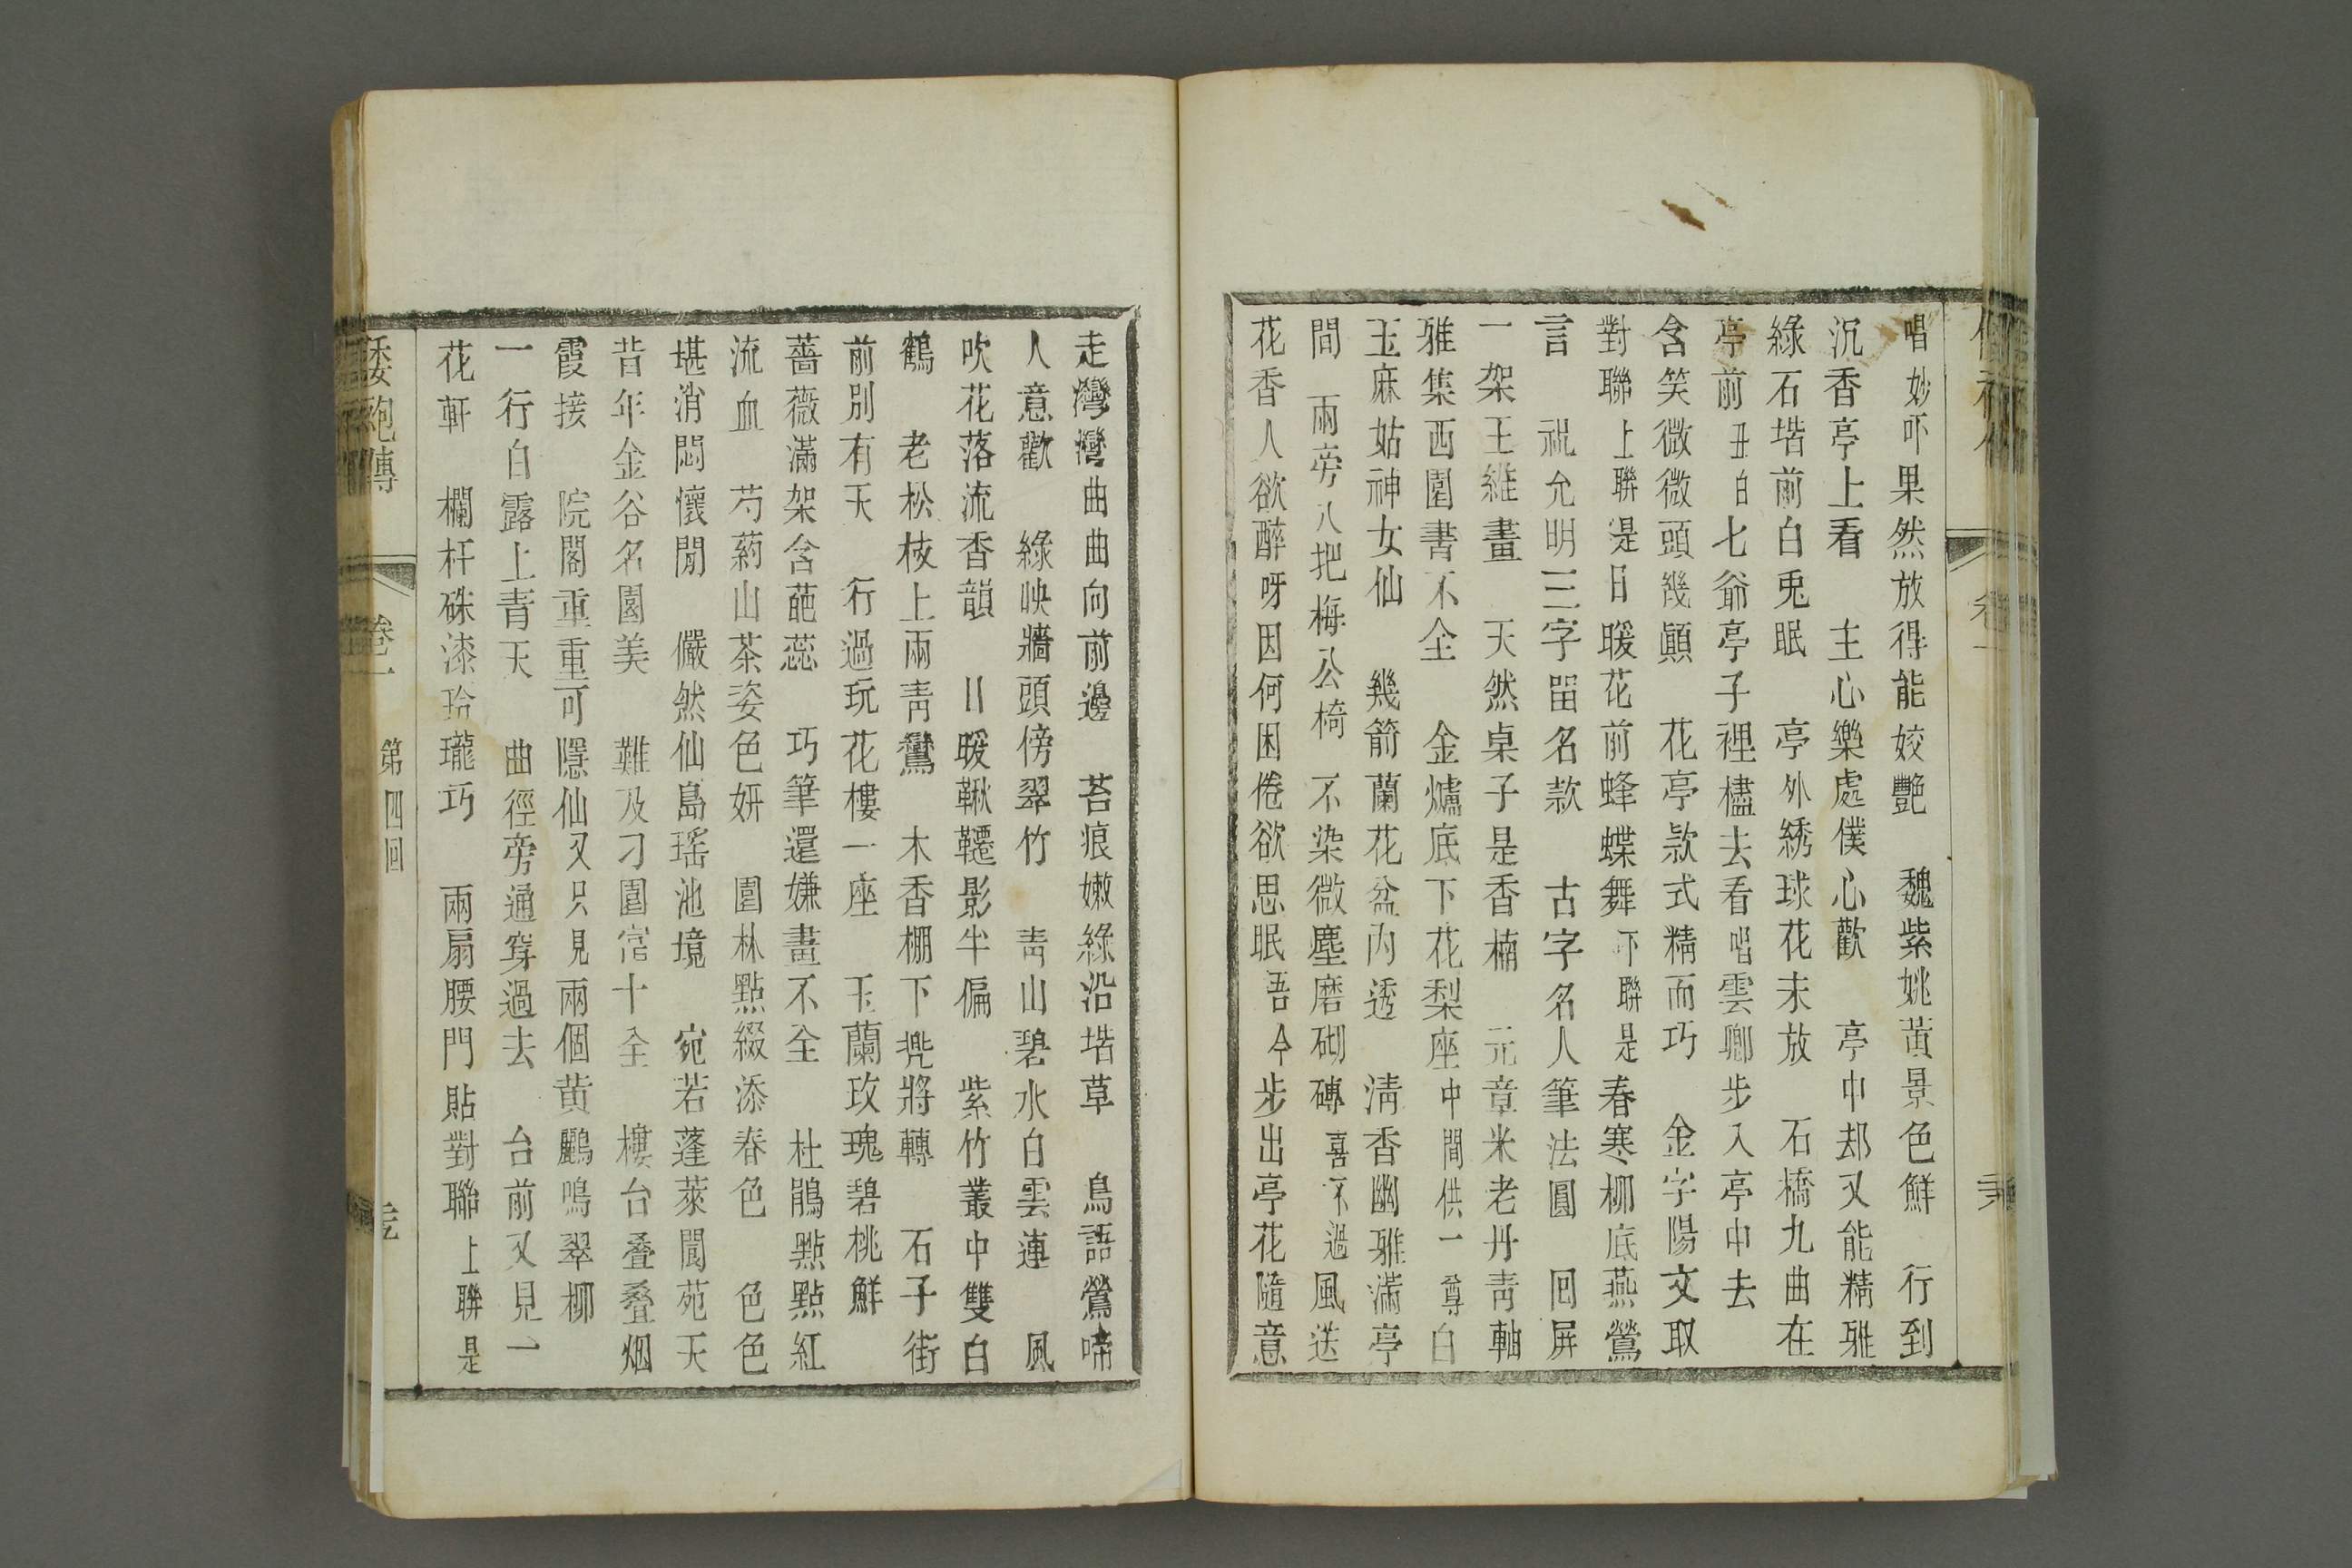 唱妙吓果然放得能姣艷　魏紫姚黃景色鮮　行到
沉香亭上看　主心樂處僕心歡　亭中却又能精雅
綠石堦前白兎眠　亭外綉球花未放　石橋九曲在
亭前丑白七爺亭子裡檯去看唱雲卿步入亭中去
含笑微微頭幾顚　花亭款式精而巧　金字陽文取
對聯上聯是日暖花前蜂蝶舞下聯是春寒柳底燕鶯
言　祝允明三字畱名款　古字名人筆法圓　回屏
一架王維畫　天然桌子是香楠　元章米老丹靑軸
雅集西園書不全　金爐底下花梨座中間供一尊白
玉麻姑神女仙　幾箭蘭花盆內透　淸香幽雅滿亭
間　兩旁八把梅公椅　不染微塵磨砌磚喜不過風送
花香人欲醉呀因何困倦欲思眠吾今步出亭花隨意
走灣灣曲曲向前邊　苔痕嫩綠沿堦草　鳥語鶯啼
人意歡　綠映牆頭傍翠竹　靑山碧水白雲連　風
吹花落流香韻　日暖鞦韆影半偏　紫竹叢中雙白
鶴　老松枝上兩靑鸞　木香棚下兠將轉　石子街
前別有天　行過玩花樓一座　玉蘭玫瑰碧桃鮮
薔薇滿架含葩蕊　巧筆還嫌畫不全　杜鵑點點紅
流血　芍葯山茶姿色妍　園林點綴添春色　色色
堪消悶懷閒　儼然仙島瑤池境　宛若蓬萊閬苑天
昔年金谷名園美　難及刁園寔十全　樓台叠叠烟
霞接　院閣重重可隱仙又只見兩個黄鸝鳴翠柳
一行白露上青天　曲徑旁通穿過去　台前又見一
花軒　欄杆硃漆玲瓏巧　兩扇腰門貼對聯上聯是
倭袍傳　卷一　第四回